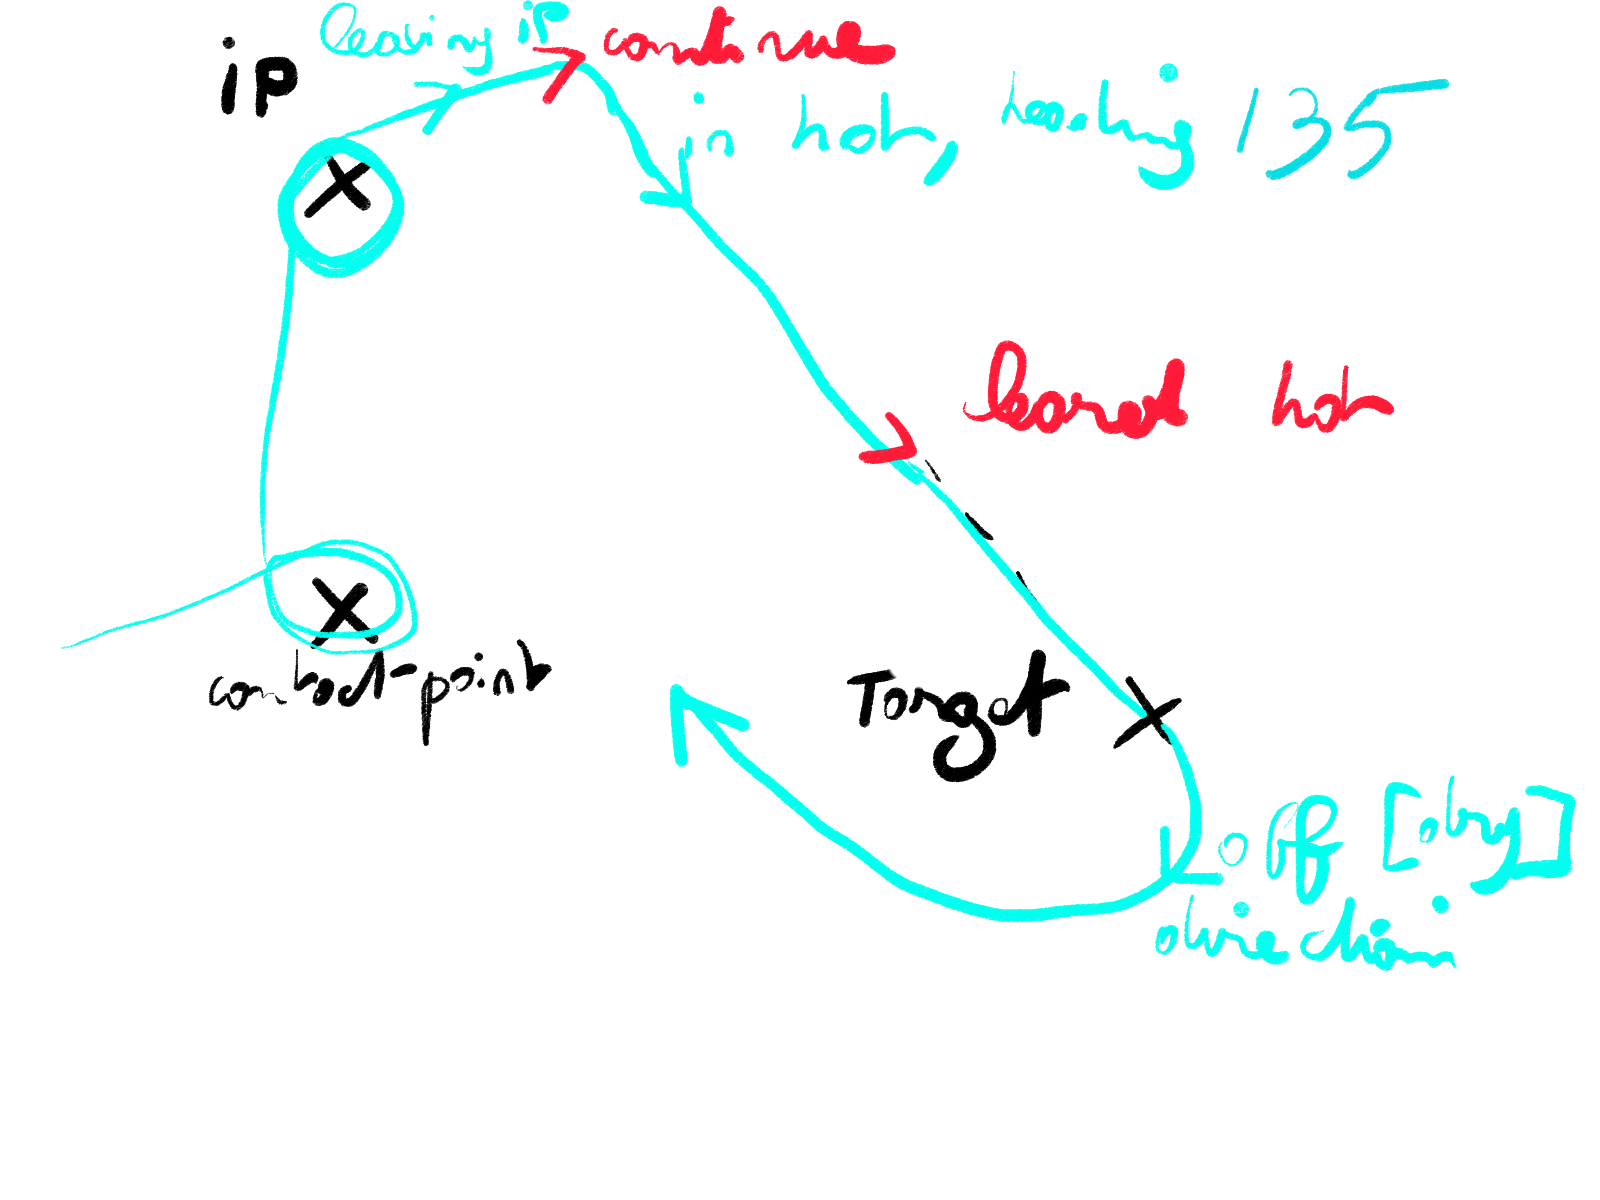 leaving iP
continue
iP
in hot, heading 135
cleared hot
contact-point
Target
off [dry]
direction